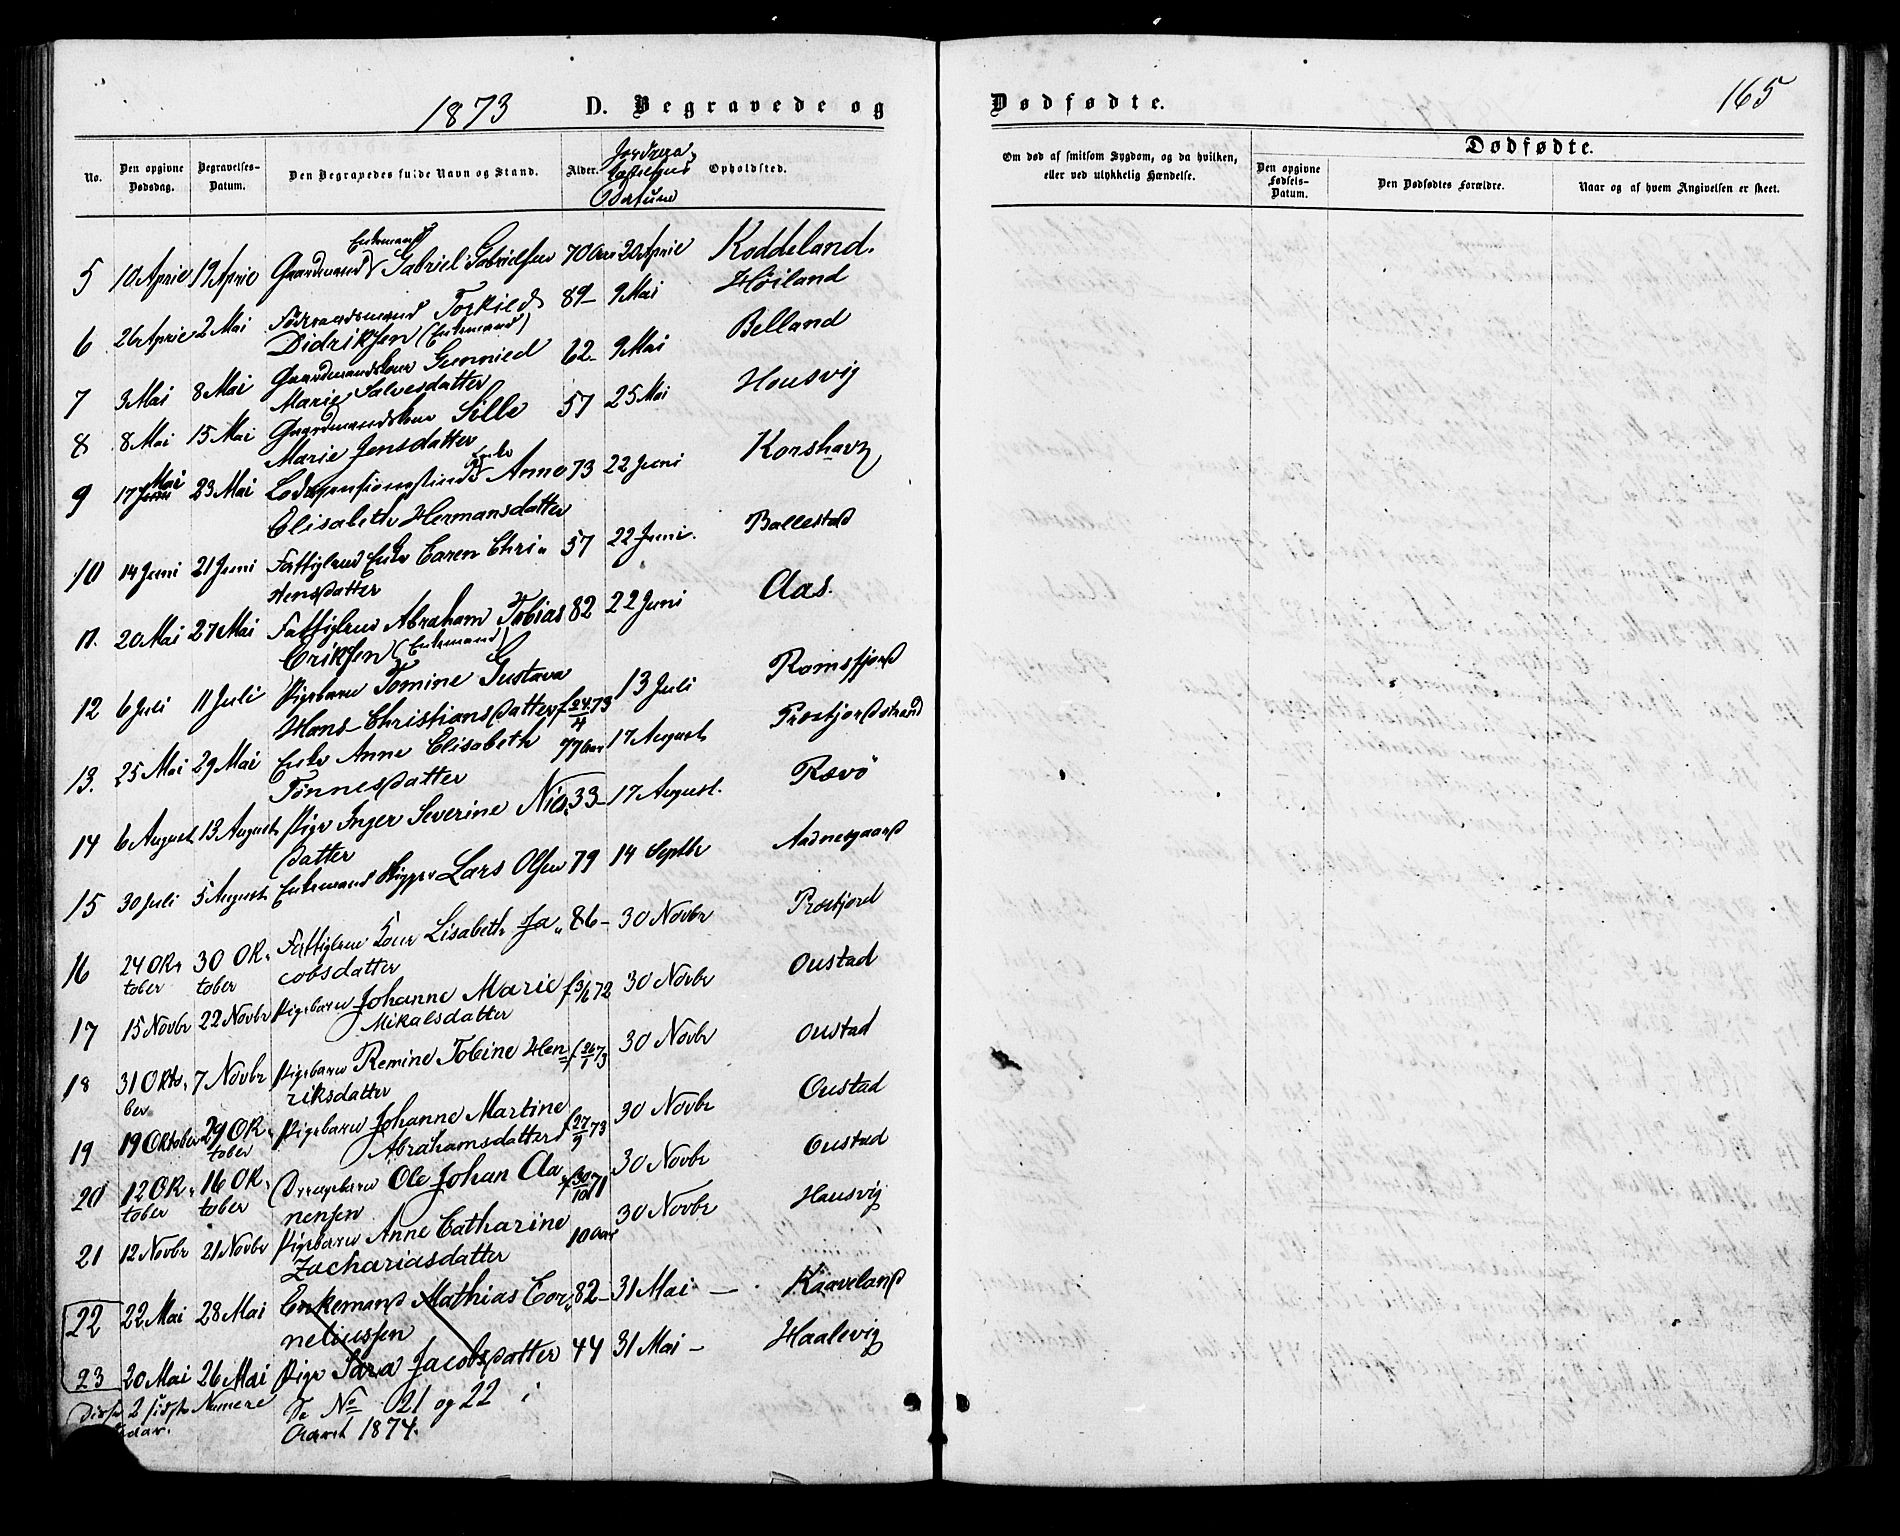 1873 D. Begravede og
Dødfødte. 165
No. Den opgivne Dødsdag. Begravelses-Datum. Den Begravedes fulde Navn og Stand. Alder. Jordpaakastelsens Datum Opholdsted.
Om død af smitsom Sygdom, og da hvilken, eller ved ulykkelig Hændelse. Den opgivne Fødsels-Datum. Dødfødte. Den Dødfødtes Forældre. Naar og af hvem Angivelsen er skeet.
Enkemand
5 10 April 19 April Gaardmand Gabriel Gabrielsen 70 Aar 20 April Koddeland.
6 26 April 2 Mai Føderaadsmand Torkild 89 – 9 Mai Høiland
Didriksen (Enkemand)
7 3 Mai 8 Mai Gaardmandskone Gunnild 62 – 9 Mai Belland
Marie Salvesdatter
8 8 Mai 15 Mai Gaardmandskone Sille 57 25 Mai Housvig
Marie Jensdatter
9 17 Mai 23 Mai Enke Anne 73 22 Juni Korshavn
Elisabeth Hermansdatter
10 14 Juni 21 Juni Fattiglem Enke Caren Chri- 57 22 Juni. Ballestad
stensdatter
11. 20 Mai 27 Mai Fattiglem Abraham Tobias 82 22 Juni Aas.
Eriksen (Enkemand)
12 6 Juli 11 Juli Pigebarn Tomine Gustava 13 Juli Ramsfjord
Hans-Christiansdatter f 24/4 73
13. 25 Mai 29 Mai Enke Anne Elisabeth 77 Aar 17 August Rosfjordstrand
Tønnesdatter
14 6 August 13 August Pige Inger Severine Niels- 33 – 17 August. Rævø
datter
15 30 Juli 5 August Enkemand Skipper Lars Olsen 79 14 Septbr Aadnesgaard
16 24 Ok- 30 Ok- Fattiglem Kone Lisabeth Ja- 86 – 30 Novbr Rosfjord
tober tober cobsdatter
17 15 Novbr 22 Novbr Pigebarn Johanne Marie f 3/6 72 30 Novbr Oustad
Mikalsdatter
18 31 Okto- 7 Novbr Pigebarn Remine Tobine Hen- f 26/1 73 30 Novbr Oustad
ber riksdatter
19 19 Oktober 29 Ok- Pigebarn Johanne Martine 30 Novbr Oustad
tober Abrahamsdatter f 27/9 73
20 12 Ok- 16 Ok- Drengebarn Ole Johan Aa- f 30/10 71 30 Novbr Oustad
tober tober nensen
21 12 Novbr 21 Novbr Pigebarn Anne Catharine 10 Aar 30 Novbr Hausvig
Zachariasdatter
22 22 Mai 28 Mai Enkemand Mathias Cor- 82 – 31 Mai – Kaaveland
neliussen
23 20 Mai 26 Mai Pige Sara Jacobsdatter 44 31 Mai – Haalevig
Disse 2 sidste Numere Se No 21 og 22 i
Aaret 1874.